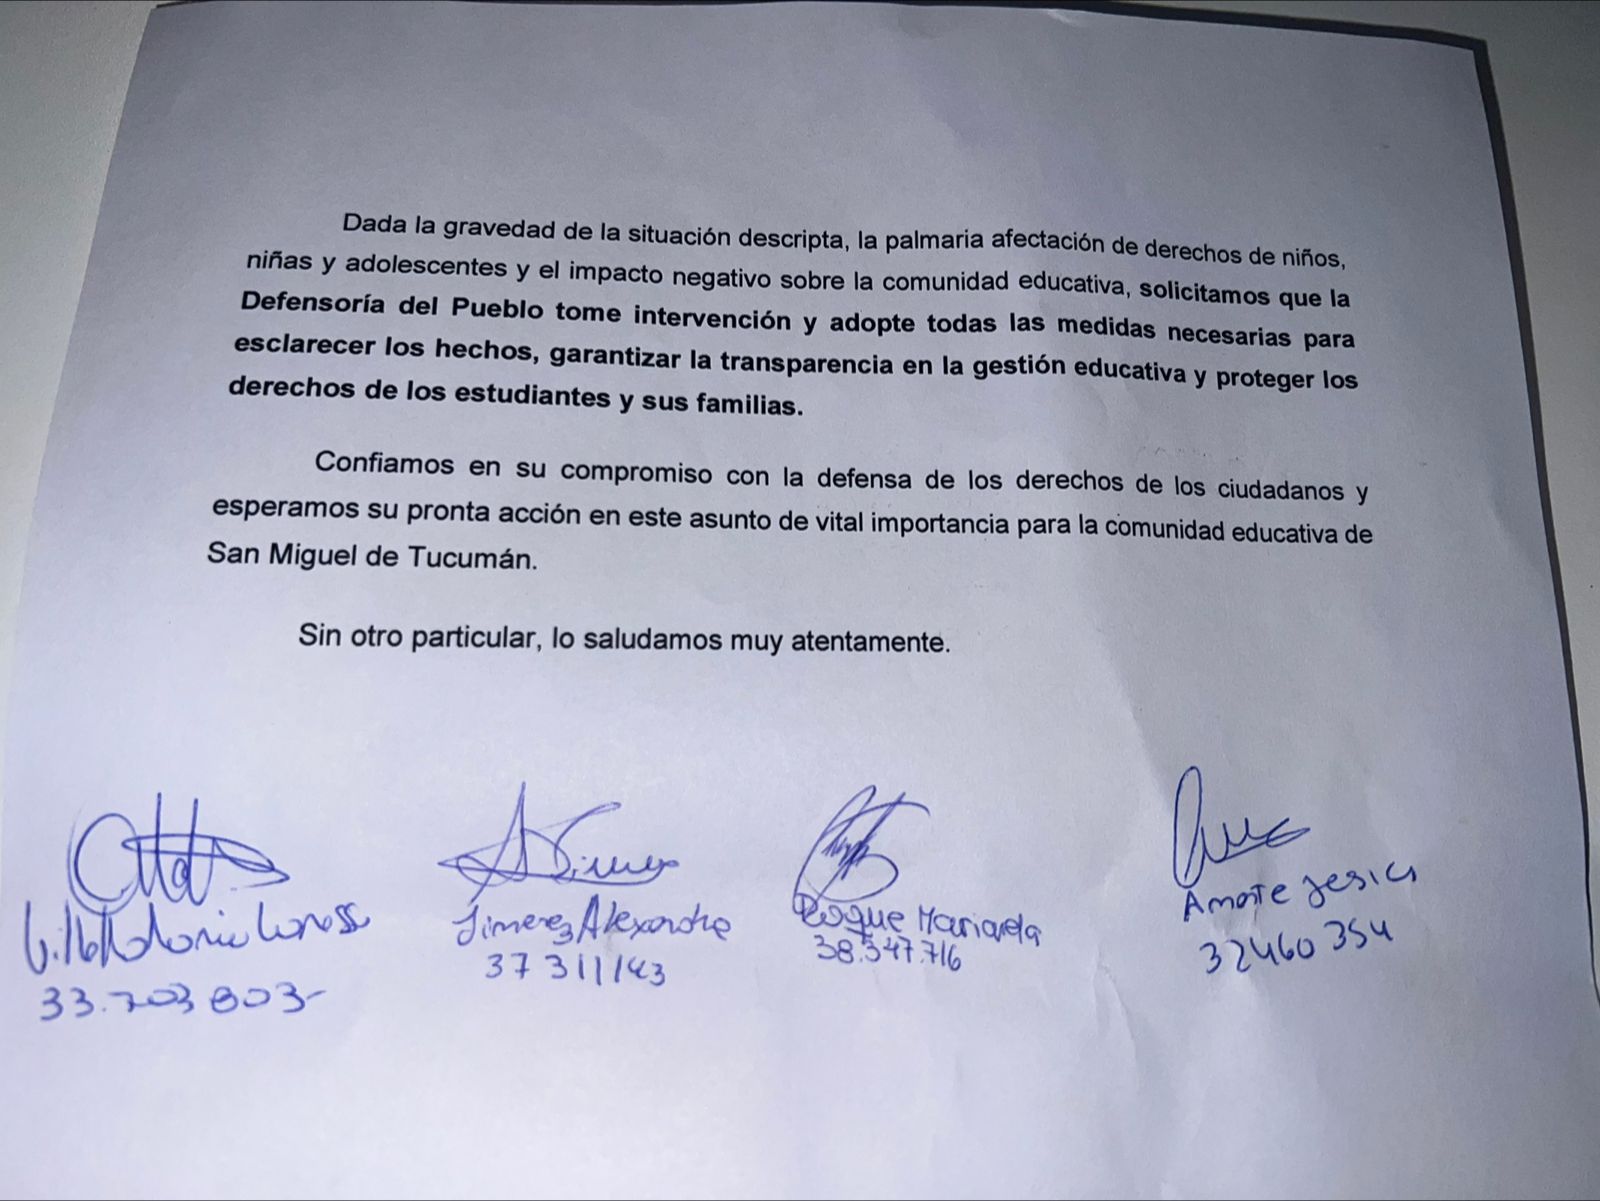 Dada la gravedad de la situación descripta, la palmaria afectación de derechos de niños,
niñas y adolescentes y el impacto negativo sobre la comunidad educativa, solicitamos que la
Defensoría del Pueblo tome intervención y adopte todas las medidas necesarias para
esclarecer los hechos, garantizar la transparencia en la gestión educativa y proteger los
derechos de los estudiantes y sus familias.
Confiamos en su compromiso con la defensa de los derechos de los ciudadanos y
esperamos su pronta acción en este asunto de vital importancia para la comunidad educativa de
San Miguel de Tucumán.
Sin otro particular, lo saludamos muy atentamente.
Jimenez Alexandra
Roque Mariarela
Amate Jesica
33.703 803-
37 311143
38.347.716
32460 354